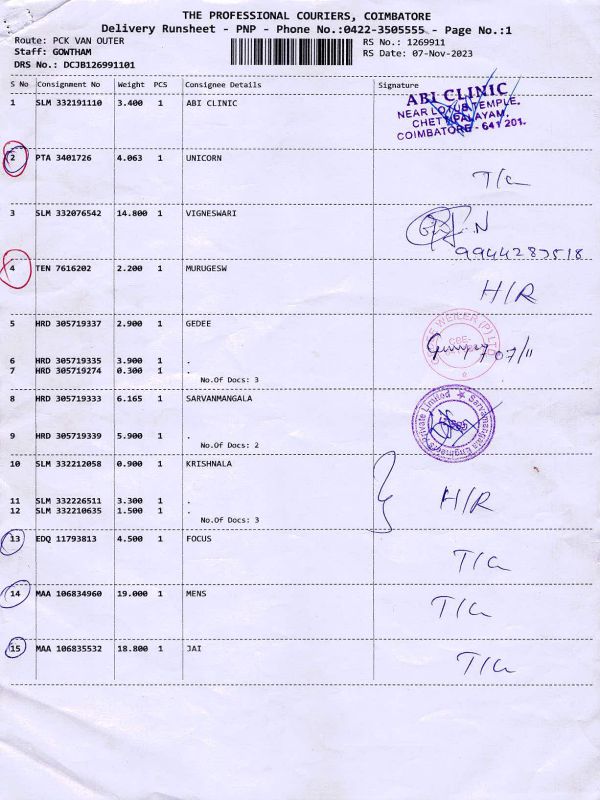 THE PROFESSIONAL COURIERS, COIMBATORE
Delivery Runsheet - PNP - Phone No.:0422-3505555 - Page No.:1
Route: PCK VAN OUTER RS No.: 1269911
Staff: GOWTHAM RS Date: 07-Nov-2023
DRS No.: DCJB126991101
S No Consignment No Weight PCS Consignee Details Signature
1 SLM 332191110 3.400 1 ABI CLINIC
ABI CLINIC
NEAR LOTUS TEMPLE,
CHETTIPALAYAM,
COIMBATORE - 641 201.
2 PTA 3401726 4.063 1 UNICORN
3 SLM 332076542 14.800 1 VIGNESWARI
9944283518
4 TEN 7616202 2.200 1 MURUGESW
H/R
5 HRD 305719337 2.900 1 GEDEE
6 HRD 305719335 3.900 1 .
7 HRD 305719274 0.300 1 .
07/11
No.Of Docs: 3
8 HRD 305719333 6.165 1 SARVANMANGALA
9 HRD 305719339 5.900 1 .
No.Of Docs: 2
10 SLM 332212058 0.900 1 KRISHNALA
11 SLM 332226511 3.300 1 .
12 SLM 332210635 1.500 1 .
H/R
No.Of Docs: 3
13 EDQ 11793813 4.500 1 FOCUS
14 MAA 106834960 19.000 1 MENS
15 MAA 106835532 18.800 1 JAI